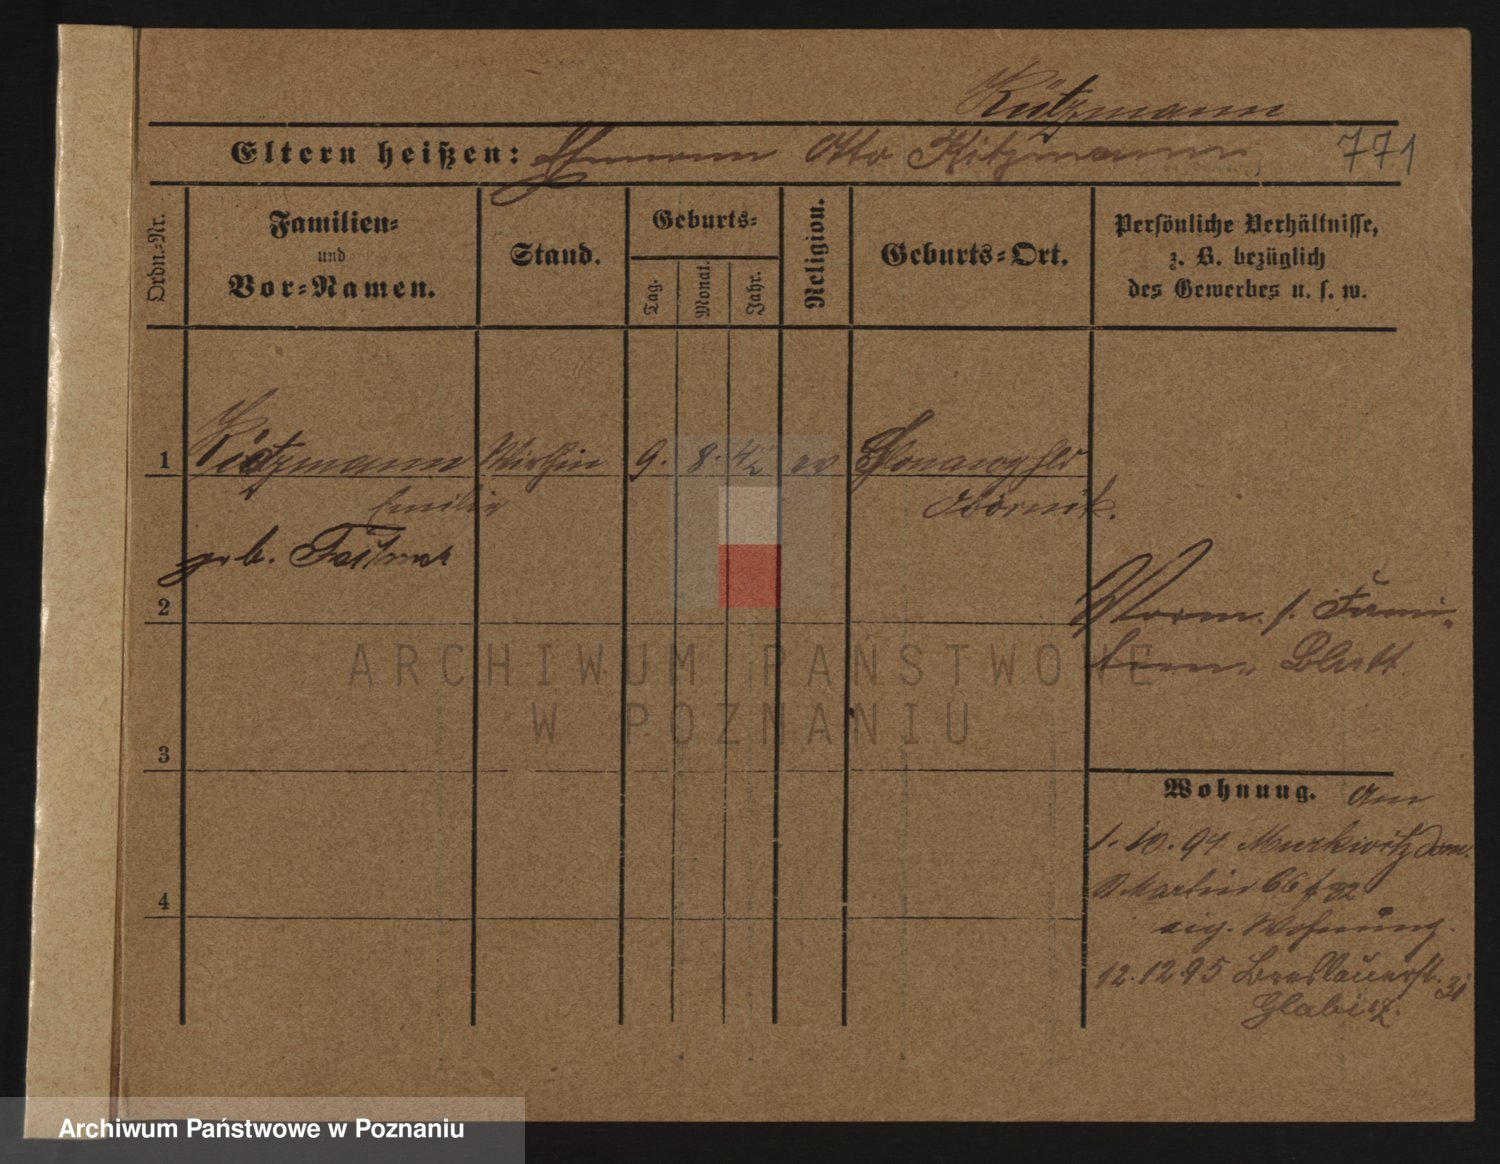 Kützmann
Eltern heißen: Ehemann Otto Kitzmann 771
Ordn.-Nr.
Familien-
und
Vor-Namen.
Stand.
Geburts-
Tag.
Monat.
Jahr.
Religion.
Geburts-Ort.
Persönliche Verhältnisse,
z. B. bezüglich
des Gewerbes u. s. w.
1 Kützmann Wirthin 9. 8. 42 ev
Emilie Obornik.
geb.
2
Vorm. s. Fami-
lien-Blatt
3
Wohnung. Am
1.10.94 Murkwitz Dom.
S Martin 66/
eig. Wohnung.
4
12.12 95 Breslauerst. 31
Glabisz.
ARCHIWUM PAŃSTWOWE
W POZNANIU
Archiwum Państwowe w Poznaniu